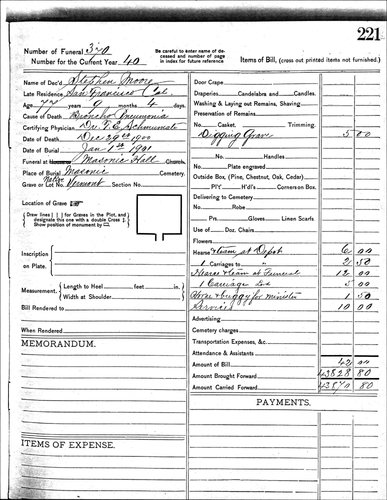 221
Number of Funeral 320
Number for the Current Year 40
Be carefully to enter name of deceased and number of page in index for future reference
Items of Bill, (cross out printed items not furnished.)
Name of Dec'd Stephen Moore
Late Residence San Francisco Cal.
Age 77 years 9 months 4 days.
Cause of Death Broncho Pneumonia
Certifying Physician Dr.
Date of Death Dec 29th 1900
Date of Burial Jan 1st 1901
Funeral at Masonic Hall Church.
Place of Burial Masonic Cemetery.
Native Vermont
Grave or Lot No. Section No.
Location of Grave
Draw lines for Graves in the Plot, and designate this one with a double Cross
Show position of monument by
Inscription on Plate.
Measurement. Length to Heel feet in.
Width at Shoulder
Bill Rendered to
When Rendered
MEMORANDUM.
ITEMS OF EXPENSE.
Door Crape
Draperies Candelabra and Candles.
Washing & Laying out Remains, Shaving
Preservation of Remains
No. Casket. Trimming.
Digging Grave 5 00
No. Handles
Plate engraved
Outside Box, (Pine, Chestnut, Oak, Cedar)
P/Y H'd's Cornerson Box
Delivering to Cemetery
No. Robe
Prs. Gloves Linen Scarfs
Use of Doz. Chairs
Flowers
Hearse & team at Depot 6 00
1 Carriages to " 2 50
Hearse & team at Funeral 12 00
1 Carriage 5 00
Horse & buggy for minister 1 50
Services 10 00
Advertising
Cemetery charges
Transportation Expenses, &c.
Attendance & Assistants
Amount of Bill 42 00
Amount Brought Forward 43828 80
Amount Carried Forward 43870 80
PAYMENTS.